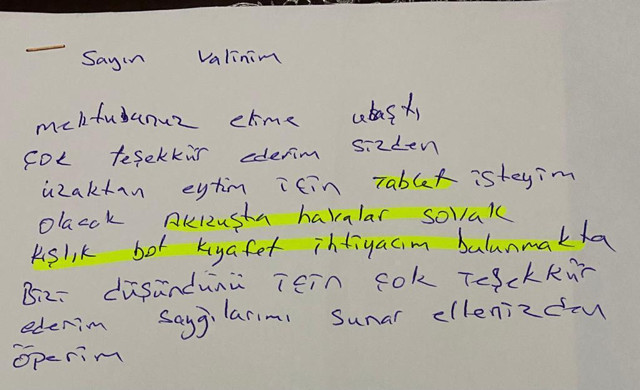 Sayın Valinim
mektubunuz elime ulaştı
çok teşekkür ederim sizden
üzaktan eytim için Tablet isteyim
olacak Akkuşta havalar sovak
kışlık bot kıyafet ihtiyacım bulunmakta
Bizi düşündünü için çok teşekkür
ederim saygılarımı sunar ellenizden
öperim